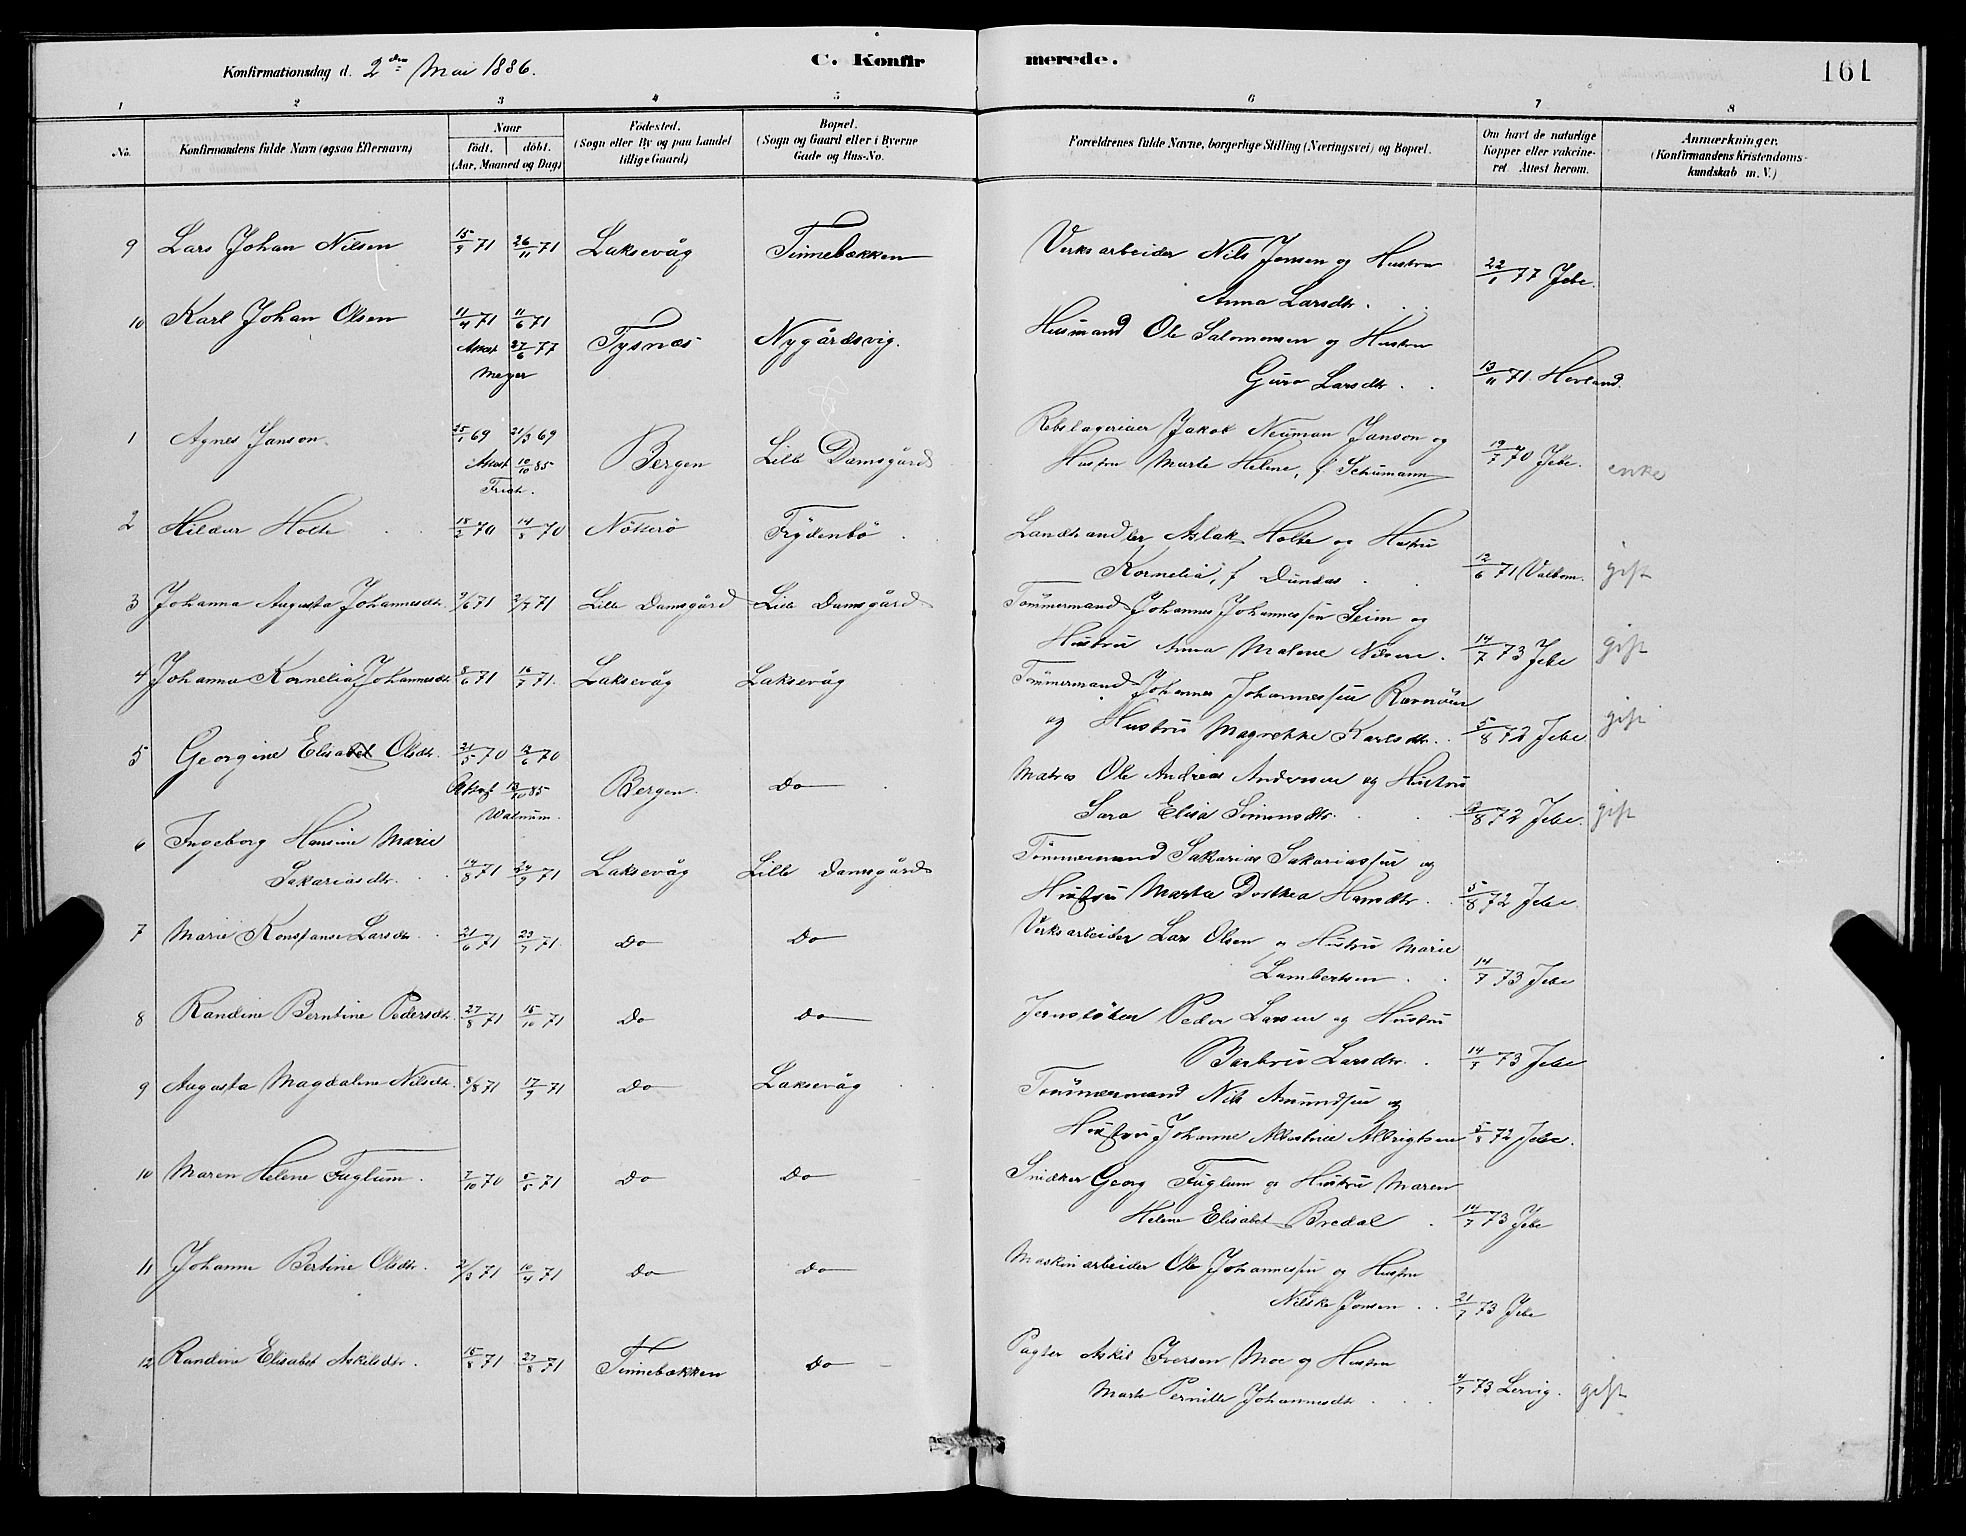 Konfirmationsdag d. 2den Mai 1886.
C. Konfir
merede.
161
1 2 3 4 5 6 7 8
No.
Konfirmandens fulde Navn (ogsaa Efternavn)
Naar
født. døbt.
(Aar, Maaned og Dag)
Fødested.
(Sogn eller By og paa Landet
tillige Gaard)
Bopæl.
(Sogn og Gaard eller i Byerne
Gade og Hus-No.
Forældrenes fulde Navne, borgerlige Stilling (Næringsvei) og Bopæl.
Om havt de naturlige
Kopper eller vakcine-
ret. Attest herom.
Anmærkninger.
(Konfirmandens Kristendoms-
kundskab m. V.)
9 Lars Johan Nilsen 15/9 71 26/11 71 Laksevåg Tinnebækken Verksarbeider Nils Jensen og Hustru
Anna Larsdtr. 22/1 77 Jebe.
10 Karl Johan Olsen 11/4 71 11/6 71 Tysnæs Nygårdsvig. Husmand Ole Salomonsen og Hustru
Attest 27/6 77
Meyer
Guro Larsdtr. 13/11 71. Hovland.
1 Agnes Janson. 25/1 69 21/3 69 Bergen Lille Damsgård Rebslageriaer Jakob Neuman Janson og
Attest 10/10 85
Hustru Marte Helene, f Schumann 19/7 70 Jebe. enke
Frich.
2 Hildur Holte 18/2 70 14/8 70 Nötterö Frydenbö Landhandler Aslak Holte og Hustru
Kornelia, f Dundas 12/6 71 Valbom. gift
3 Johanna Augusta Johannesdtr. 2/6 71 2/7 71 Lille Damsgård Lille Damsgård Tömmermand Johannes Johannessen Seim og
Hustru Anna Malene Nilsen. 14/7 73 Jebe gift
4 Johanna Kornelia Johannesdtr 8/6 71 16/7 71. Laksevåg Laksevåg Tömmermand Johannes Johannessen Ravnöen
og Hustru Magrethe Karlsdtr. 5/8 72 Jebe gift
5 Georgine Elisabet Olsdtr. 21/5 70 12/6 70 Bergen. Do Matros Ole Andreas Andersen og Hustru
Attest 13/10 85
Walnum.
Sara Elisa Simonsdtr. 9/8 72 Jebe. gift
6 Ingeborg Hansine Marie
Sakariasdtr. 14/8 71 24/9 71 Laksevåg Lille Damsgård Tömmermand Sakarias Sakariassen og
Hustru Marta Dorthea Hansdtr. 5/8 72 Jebe.
7 Marie Konstanse Larsdtr. 21/6 71 23/7 71. Do Do Verksarbeider Lars Olsen og Hustru Marie
Lambertsen 14/7 73 Jebe
8 Randine Berntine Pedersdtr. 27/8 71 15/10 71 Do Do Jernstöber Peder Larsen og Hustru
Barbru Larsdtr. 14/7 73 Jebe
9 Augusta Magdalene Nilsdtr. 8/8 71 17/9 71 Do Laksevåg Tömmermand Nils Amundsen og
Hustru Johanne Albertine Albrigtsen 5/8 72 Jebe.
10 Maren Helene Fuglum. 7/10 70 5/5 71 Do Do Snidker Georg Fuglum og Hustru Maren
Helene Elisabet Bredal 14/7 73 Jebe
11 Johanne Bertine Olsdtr. 2/3 71 10/4 71 Do Do Maskinarbeider Ole Johannessen og Hustru
Nilske Jonsen 21/7 73 Jebe
12 Randine Elisabet Askilsdtr. 15/8 71 27/8 71 Tinnebækken Do Pagter Askil Iversen Moe og Hustru
Marte Pernille Johannesdtr 4/7 73 Lervig. gift